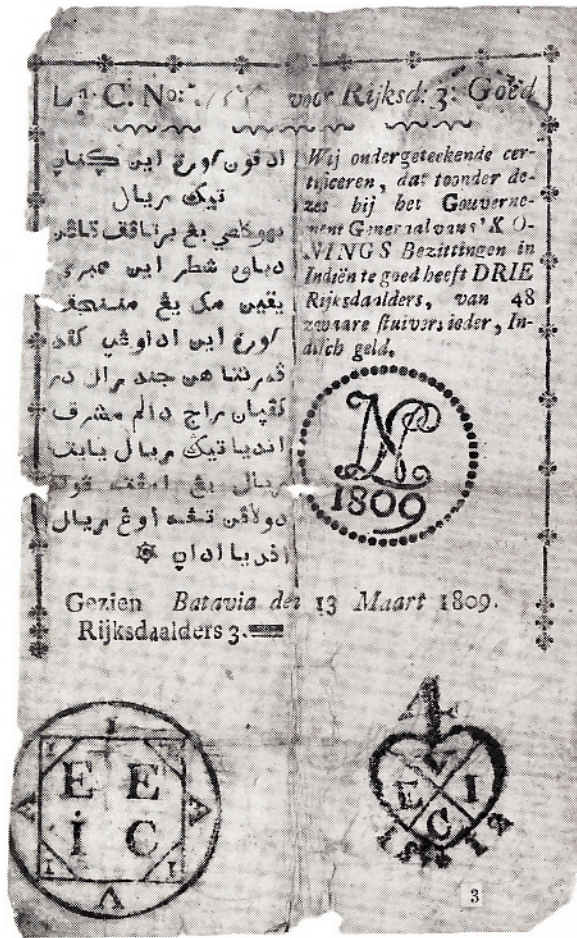 La. C. No: voor Rijksd: 3: Goed
ادڤون اورڠ اين
تيݢ ريال
يڠ
دباوه شطر اين ممبري
يقين مك يڠ
اورڠ اين
هن جندرال در
راج دالم مشرق
انديا تيݢ ريال يايت
ريال يڠ امڤت ڤوله
دولاڤن اوڠ ريال
انديا
Wij ondergeteekende cer-
tificeren, dat toonder de-
zes bij het Gouverne-
ment Generaal van s' KO-
NINGS Bezittingen in
Indiën te goed heeft DRIE
Rijksdaalders, van 48
zwaare stuivers ieder, In-
disch geld.
LN
1809
Gezien Batavia den 13 Maart 1809.
Rijksdaalders 3.
E E
I C
4
V
E I
C
1812
3